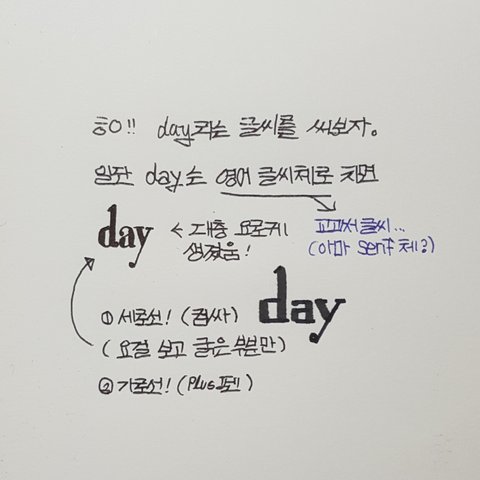 흐O!! day라는 글씨를 써보자.
일단 day는 영어 글씨체로 치면
day ← 대충 요로케 생겼음!
교과서글씨...
(아마 serif체?)
day
① 세로선! (컴싸)
(요걸 보고 굵은 부분만)
② 가로선! (Plus펜)